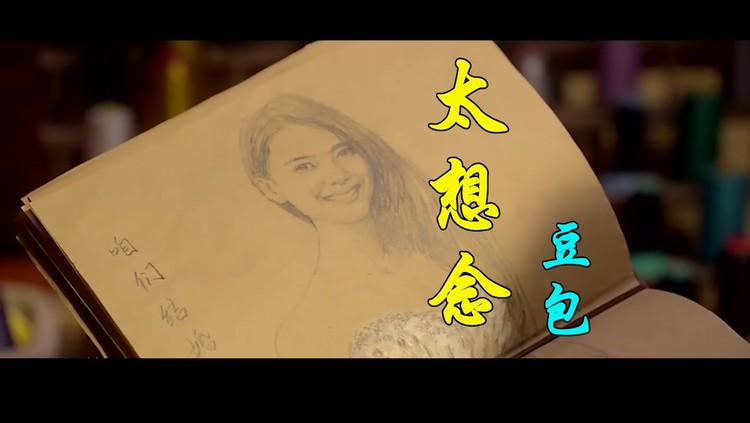 太想念
豆包
咱们结婚